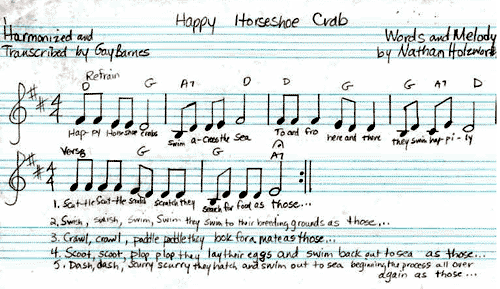 Happy Horseshoe Crab
Harmonized and
Transcribed by Gay Barnes
Words and Melody
by Nathan Holzwork
Refrain
D G A7 D D G G A7 D
4
4
Hap-py Horseshoe crabs swim a-cross the sea To and fro here and there they swim hap-pi-ly
Verse G G A7
4
4
1. Scit-tle Scat-tle scratch they search for food as those...
2. Swish, splish, swim, swim they swim to their breeding grounds as those...
3. Crawl, crawl, paddle paddle they look for a mate as those...
4. Scoot, scoot, plop plop they lay their eggs and swim back out to sea as those...
5. Dash, dash, scurry scurry they hatch and swim out to sea beginning the process all over
again as those...